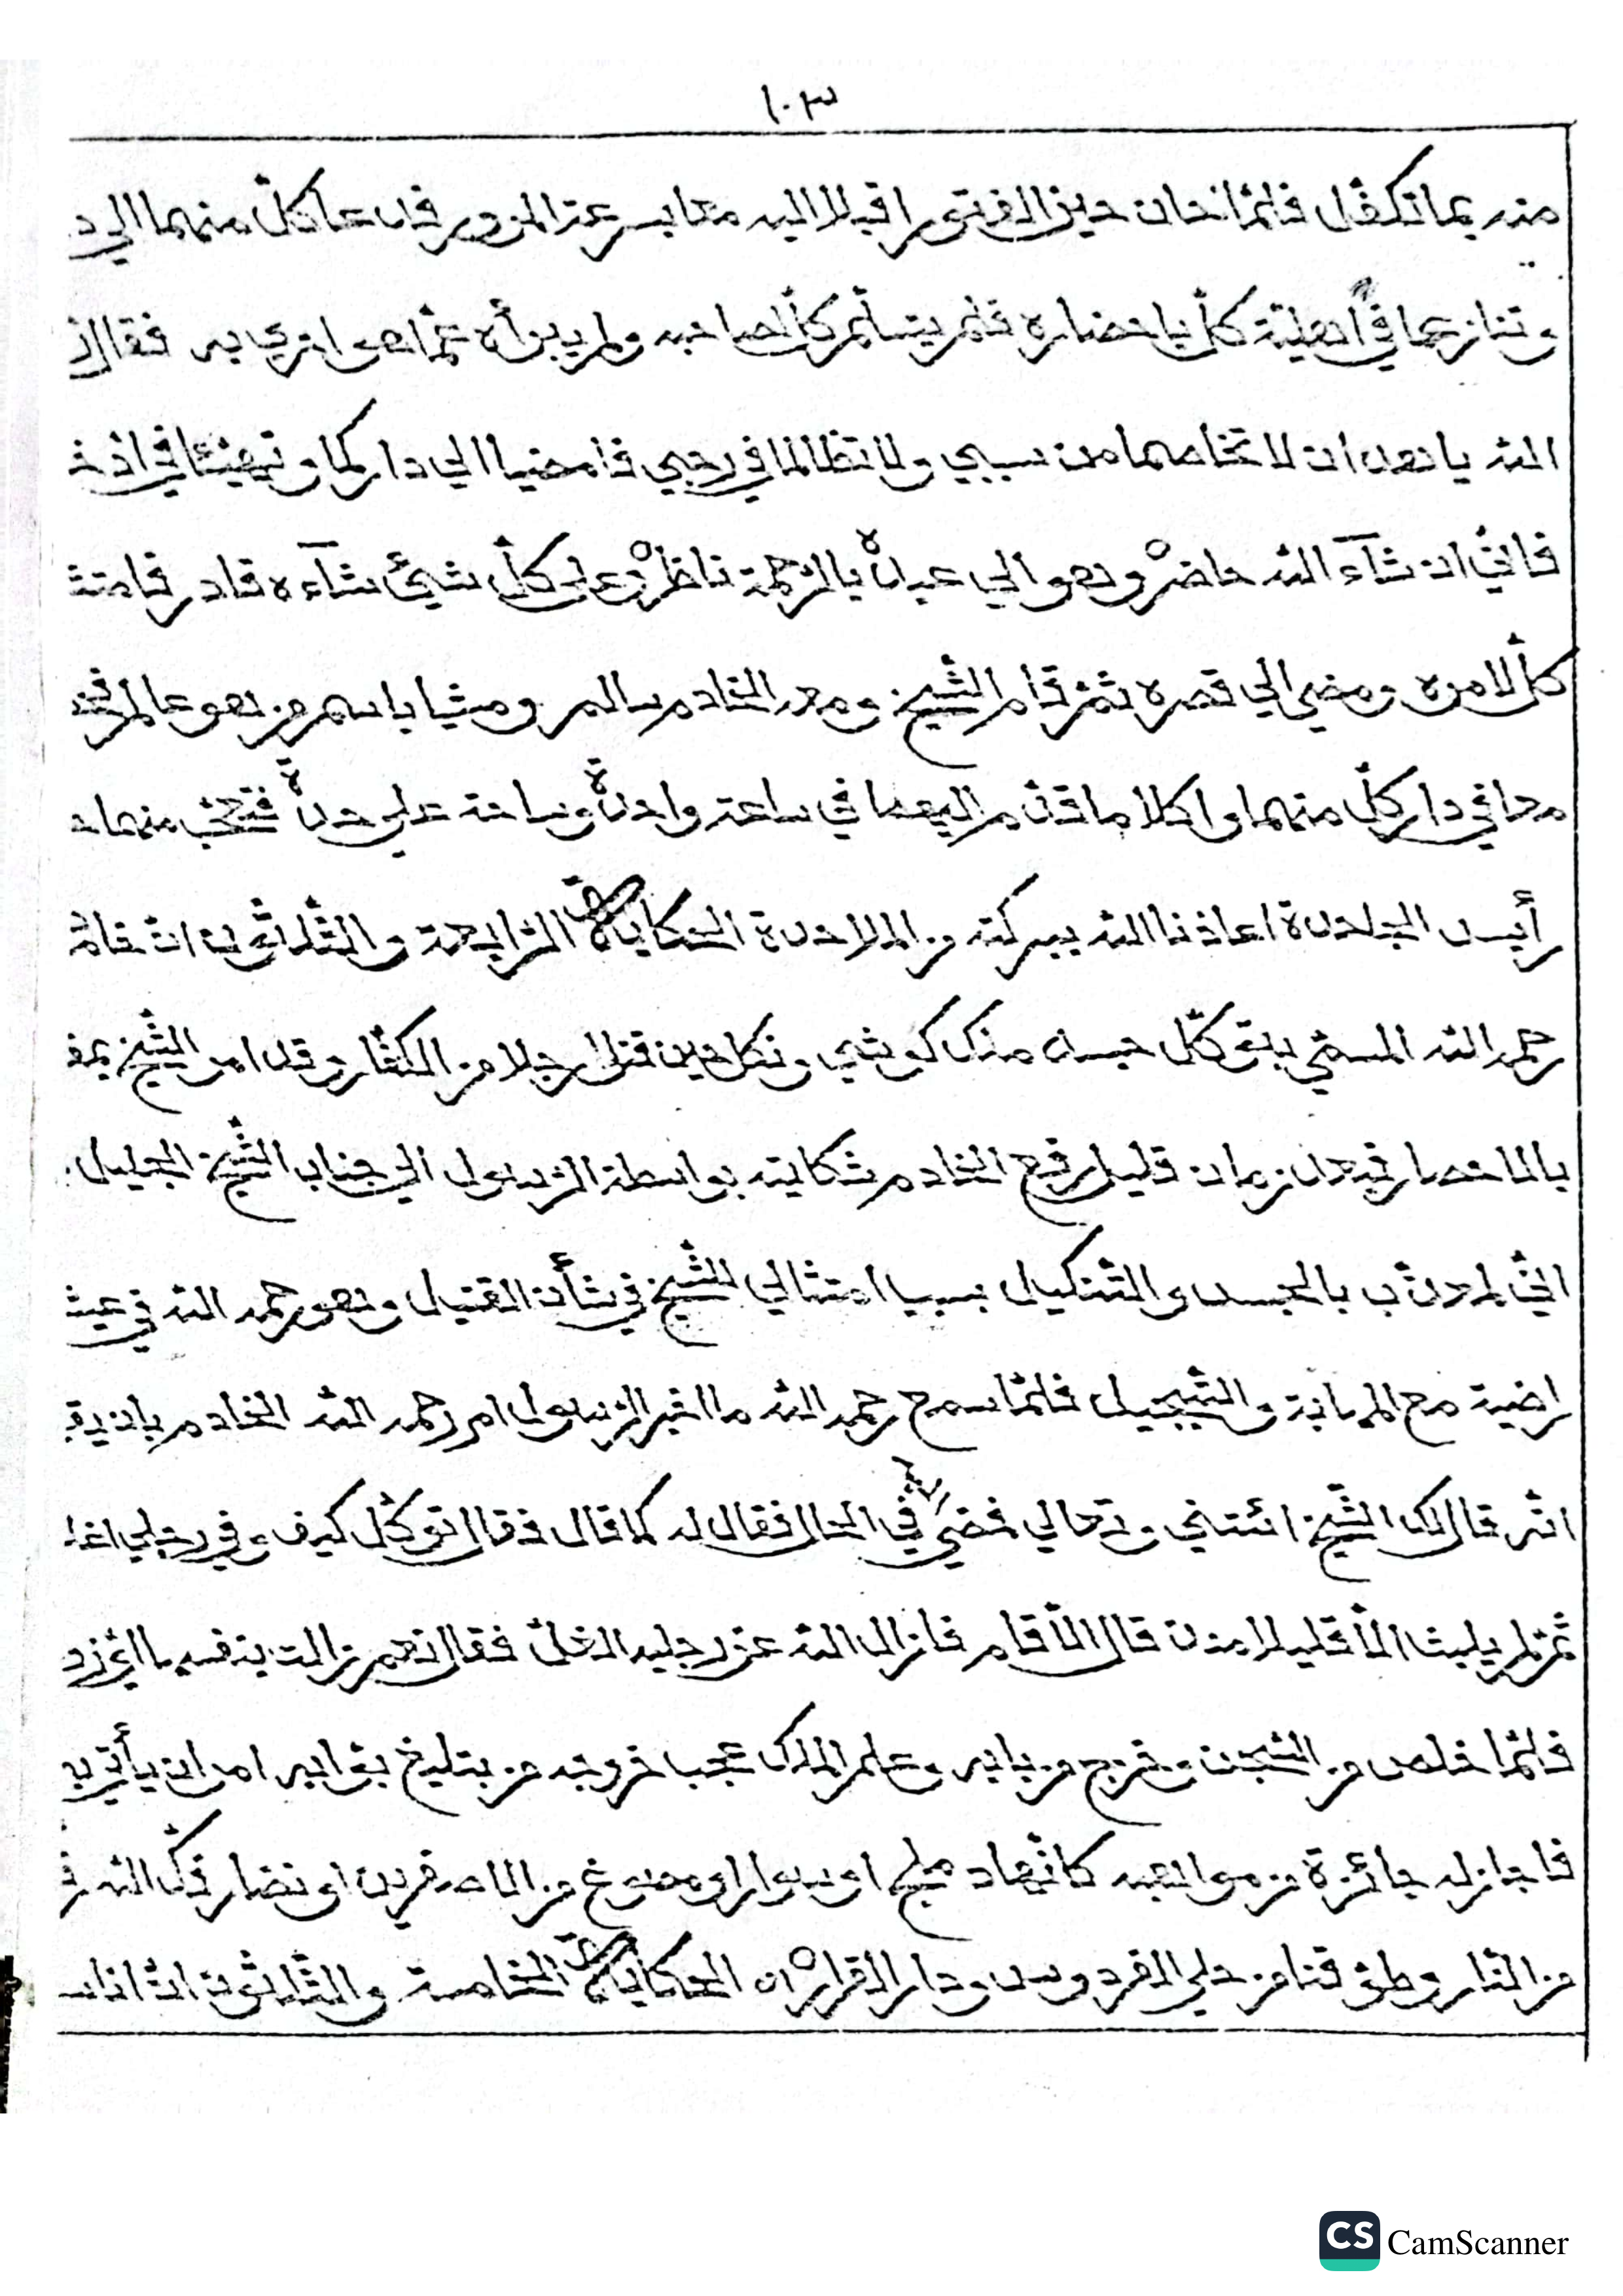 ١٠٣
منه بما تكفّل فلمّا حان حين الفتور اقبلا اليه معا بسرعة المزور فدعا كلّ منهما الى د
وتنازعا في أهليّة كلّ باحضاره فلم يتسلّم كلّ لصاحبه ولم يبرأه عمّا هو احرى به فقال
الله يا هذان لا تخاصما من سببي ولا تظالما في رحبي فامضيا الى داركما وتهيّئا في
فانّي ان شآء الله حاضر وهو الى عباده بالرّحمة ناظر وعلى كلّ شيئ شآءه قادر فامتث
كلّ لامره ومضى الى قصره ثمّ قام الشّيخ ومعه الخادم سالم ومشيا باسم من هو عالم
معا في دار كلّ منهما واكلا ما قدّم اليهما في ساعة واحدة وساحة على حدة فتعجّب منهما
رأيس الجلادة اعاذنا الله ببركته من الملاحدة الحكاية الرّابعة والثّلاثون انّ خادمه
رحمه الله المسمّى بتوكّل حبسه منك كوشي ونكل حين قتل رجلا من الكفّار وقد امر الشّيخ
بالاحصار فبعد زمان قليل رفع الخادم شكايته بواسطة الرّسول الى جناب الشّيخ الجليل
انّي لمعذّب بالحبس والتّنكيل بسبب امتثالي للشّيخ في شأن القتيل وهو رحمه الله في عيش
راضية مع المهابة والتّبجيل فلمّا سمع رحمه الله ما اخبر الرّسول امر رحمه الله الخادم بان يق
انّه قال لك الشّيخ ائتني وتعالى فمضى في الحال فقال له كما قال فقال توكّل كيف وفي رجلي اغلا
ثمّ لم يلبث الّا قليلا منذ قال الّا قام فازال الله عن رجليه الغلّ فقال نعم زالت بنفسها
فلمّا خلص من السّجن وخرج من بابه وعلم الملك عجب خروجه من بتليغ بوّابه امر ان يأتى به
فاجازله جائزة من مواهبه كانّها دملج او سوار او مصوغ من الاصفرين او نضار فكّ الله
من النّار وطوّقنا من حلي الفردوس ودار القرار اه الحكاية الخامسة والثّلاثون انّ اناسا
CS CamScanner